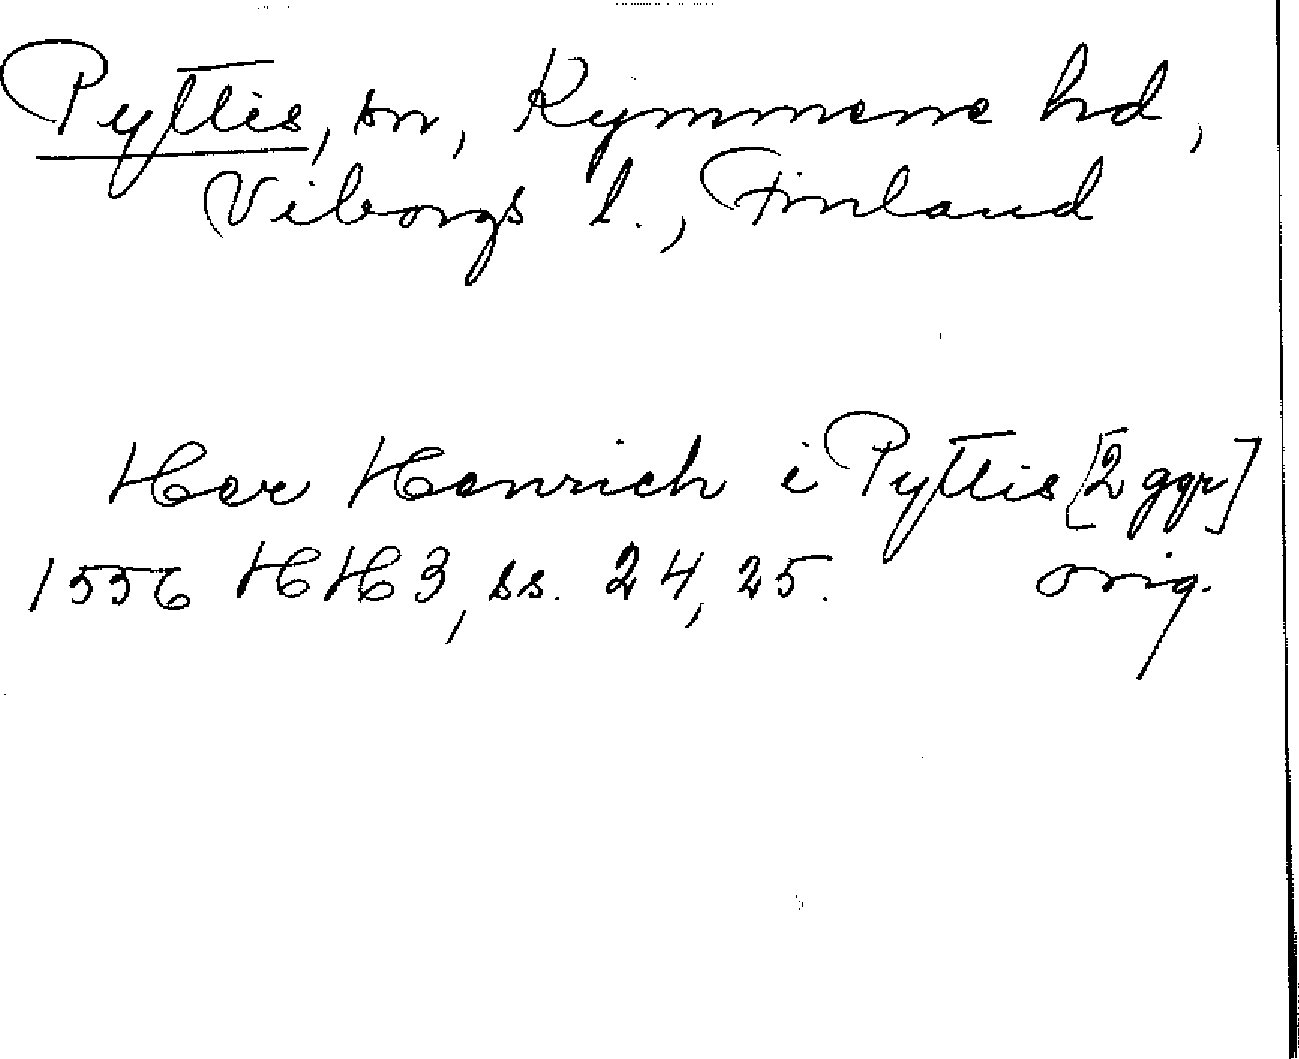 Pyttis, sn, Kymmene hd,
Viborgs l., Finland
Her Henrich i Pyttis [2 ggr]
1556 HH3, ss. 24, 25. orig.